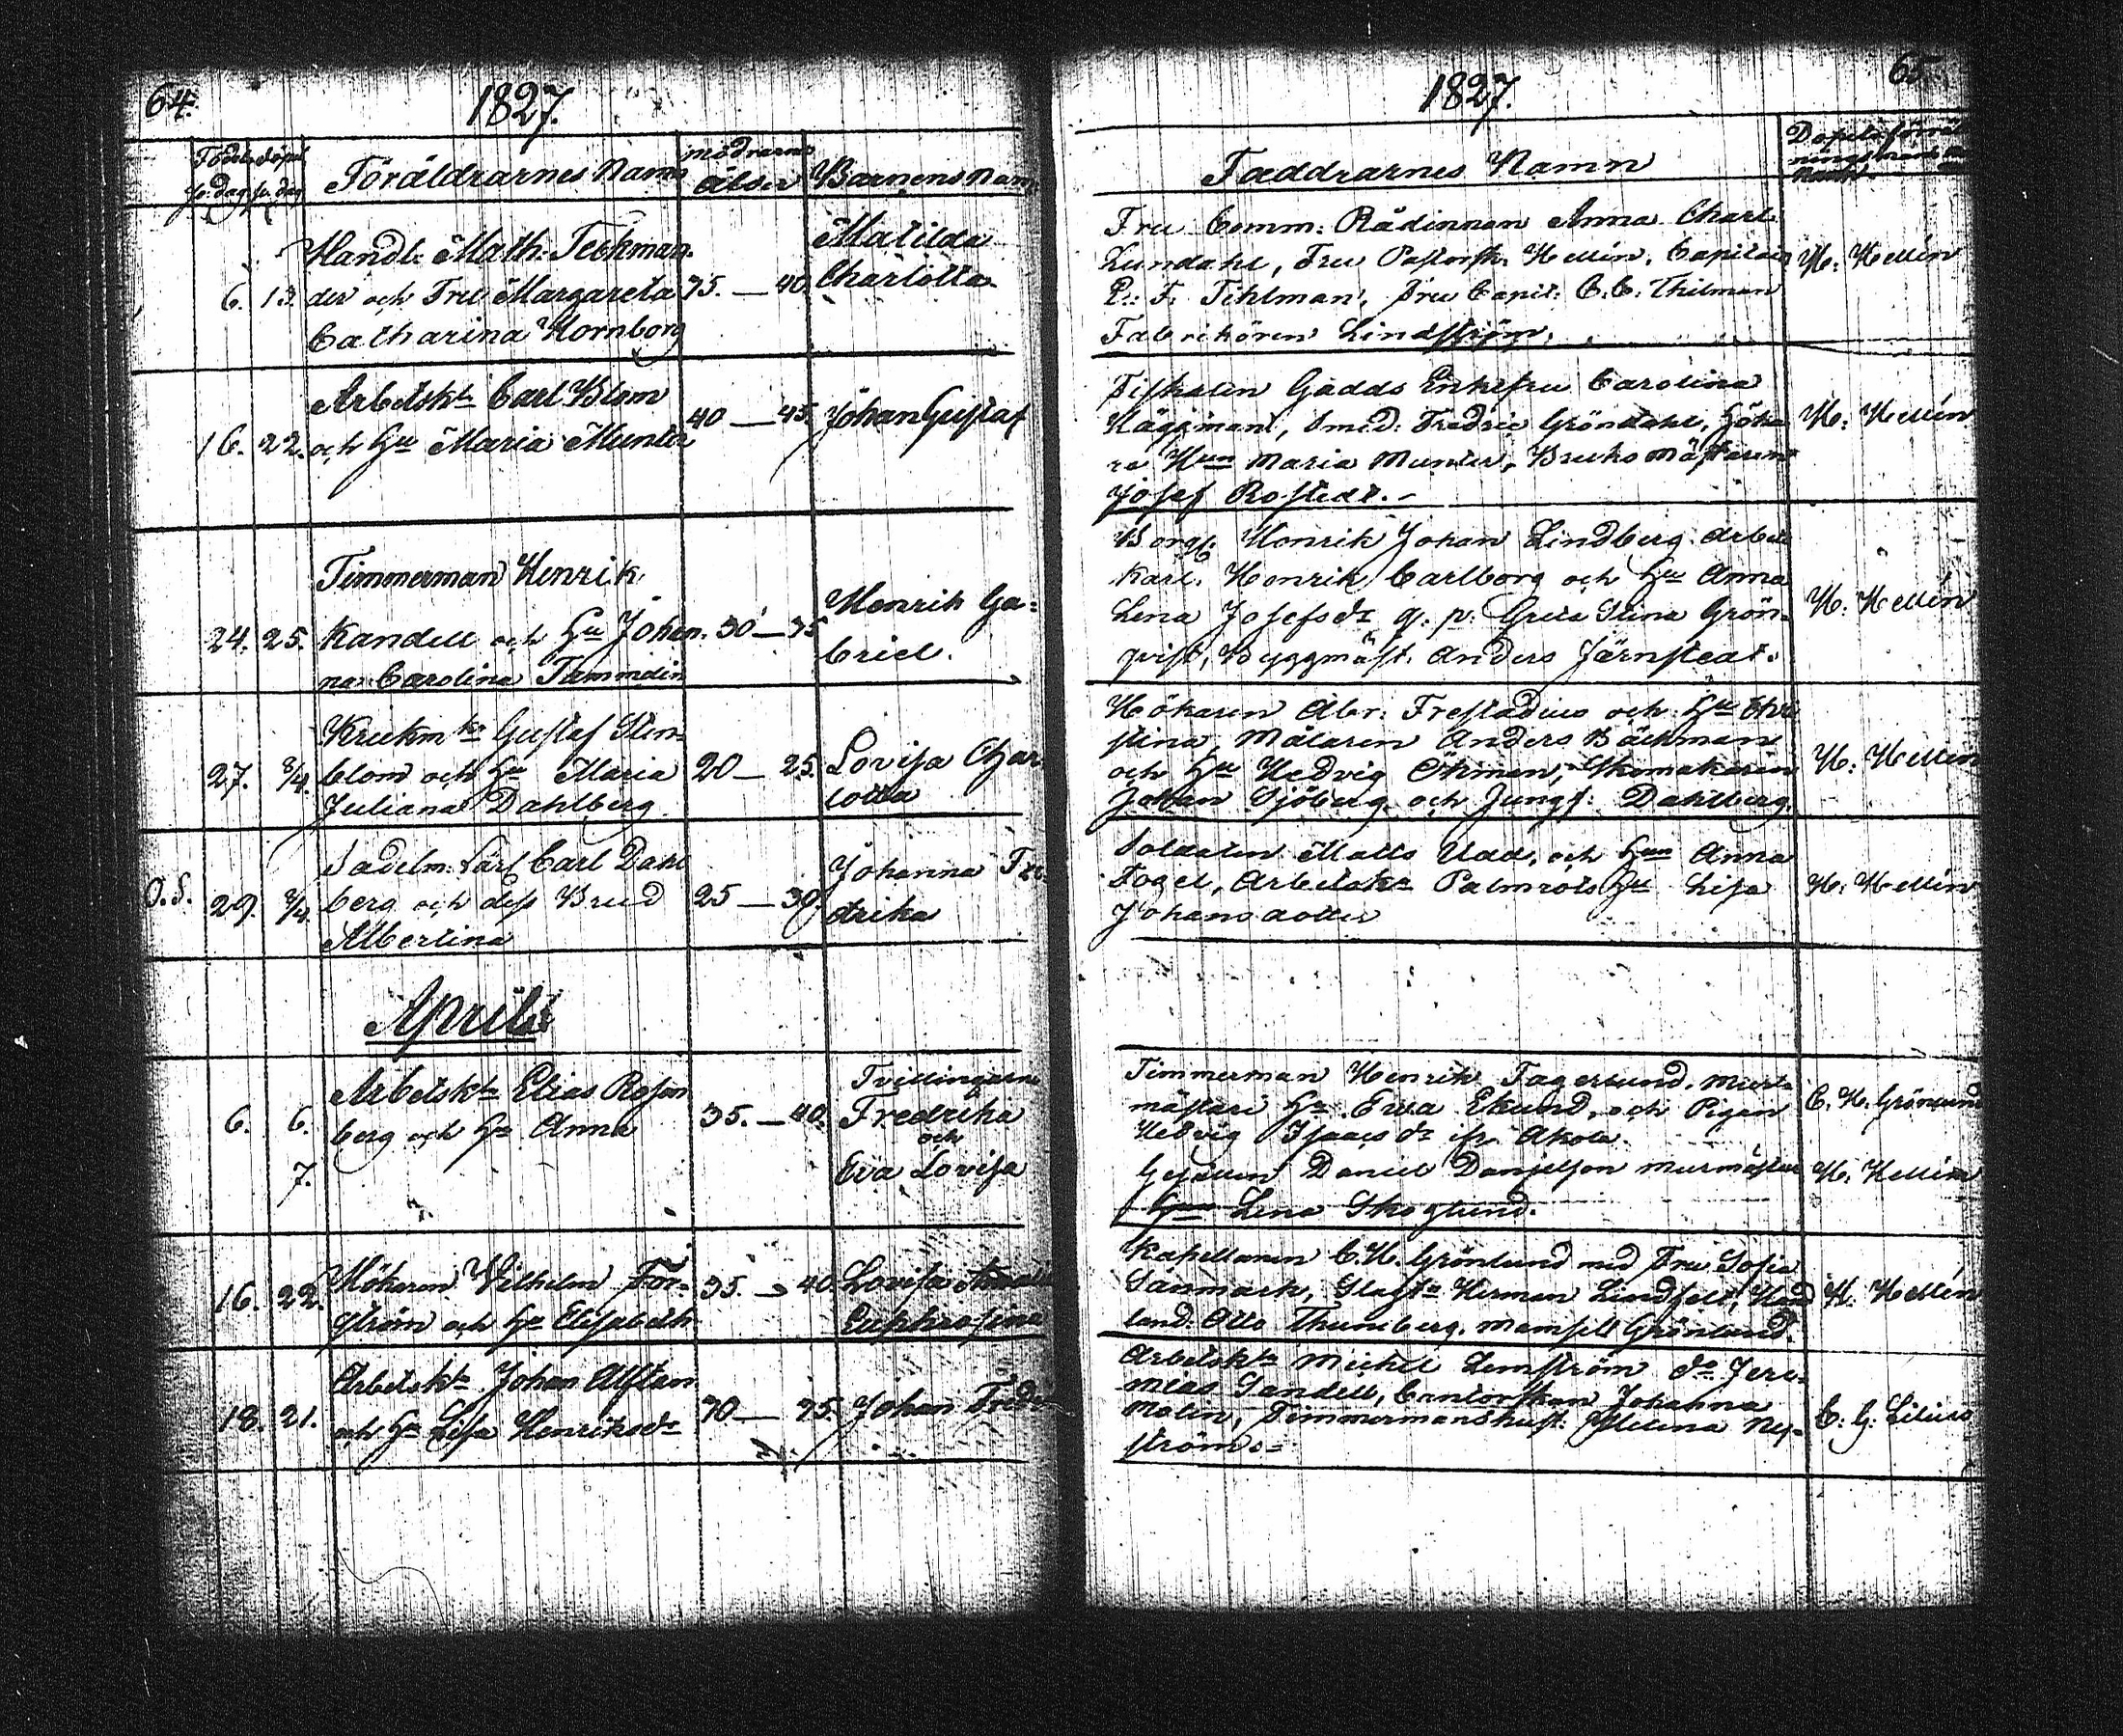 64.
1827.
Födels Döpel
se dag se dag
Föräldrarnes Namn
Mödrarnes
ålder
Barnens Namn
6. 13.
Handl. Math: Techman-
der och Fru Margareta
Catharina Hornborg
35. — 40.
Matilda
Charlotta
16. 22.
Arbetsk. Carl Blom
och Hu Maria Munter
40 — 45.
Johan Gustaf
24. 25.
Timmerman Henrik
Kandell och Hu Johan-
na Carolina Tammelin
30 — 35
Henrik Ga-
briel.
27. 8/4.
Krukmkr Gustaf Sten-
blom och Hu Maria
Juliana Dahlberg
20 — 25.
Lovisa Char
lotta
O.S. 29. 8/4.
Sadelm: Lärl Carl Dahl
berg och dess Brud
Albertina
25 — 30.
Johanna Fre
drika
April
6. 6.
7.
Arbetsk. Elias Rosen
berg och Hu Anna
35. — 40.
Tvillingarne
Fredrika
och
Eva Lovisa
16. 22.
Hökaren Vilhelm For-
ström och Hu Elisabeth
35. — 40.
Lovisa
Euphrosina
18. 21.
Arbetsk. Johan Alftan
och Hu Lisa Henriksdr
Johan Fredr
65
1827.
Faddrarnes Namn
Fru Comm: Rådinnan Anna Charl.
Lundahl, Fru Pastorsk. Hellén, Capitain
P: F: Tihlman, Fru Capit: C. C. Thilman
Fabrikören Lindström.
H: Hellén
Fiskalen Gadds Enkefru Carolina
Häggman, Smed: Fredric Gröndahl, Höka
re Hun Maria Munter, Bruksmästaren
Josef Rostedt.
H: Hellén
Borg. Henrik Johan Lindberg Arbets
karl. Henrik Carlborg och Hu Anna
Lena Josefsdr q. p. Greta Stina Grön-
qvist, Byggmäst. Anders Järnstedt.
H: Hellén
Hökaren Abr: Frestadius och Hu Chri
stina, Målaren Anders Bäckman
och Hu Hedvig Öhman, Skomakaren
Johan Sjöberg och Jungf: Dahlberg.
H: Hellén
Soldaten Matts Udd, och Hun Anna
Fogel, Arbetsk. Palmrots Hu Lisa
Johansdotter
H: Hellén
Timmerman Henrik Fagerlund, Mur
mästare Hu Eva Ekund, och Pigan
Hedvig Isaacsdr ifr. Akola.
C. H. Grönlund
Gesällen Daniel Danjelson Murmästar
Hun Lena Skoglund.
H: Hellén
Kapellanen C. H. Grönlund med Fru Sofia
Sanmark, Herman Lindfelt, Hand
land. Otto Thuneberg. Mamsell Grönlund.
H: Hellén
Arbetsk. Mickel Lemström do Jere-
mias Sandell, Cantorskan Johanna
Malin, Timmermanshust. Helena Ny-
ström.
C. G. Lilius